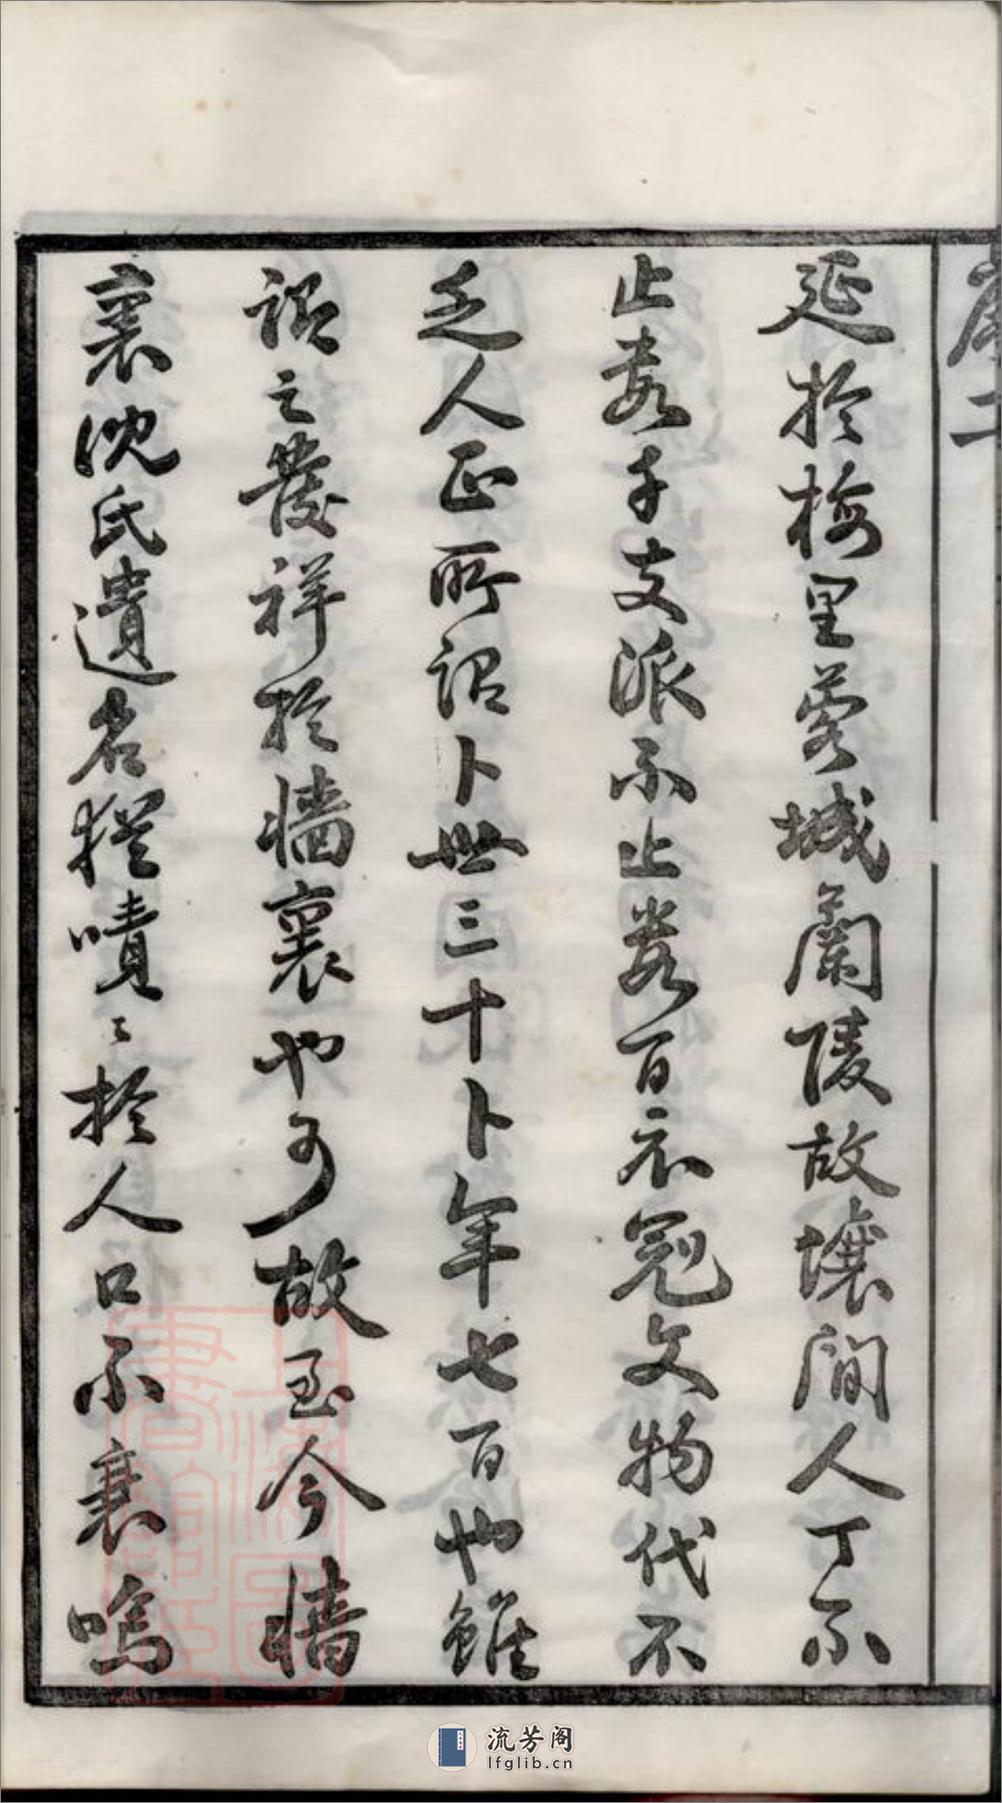 延於梅里蓉城蘭陵故壤間人丁不
止數千支派不止數百衣冠文物代不
乏人正所謂卜世三十卜年七百也雖
謂之發祥於墻裏也可故至今墻
裏沈氏遺名猶嘖〻於人口不衰嗚
流芳阁
lfglib.cn